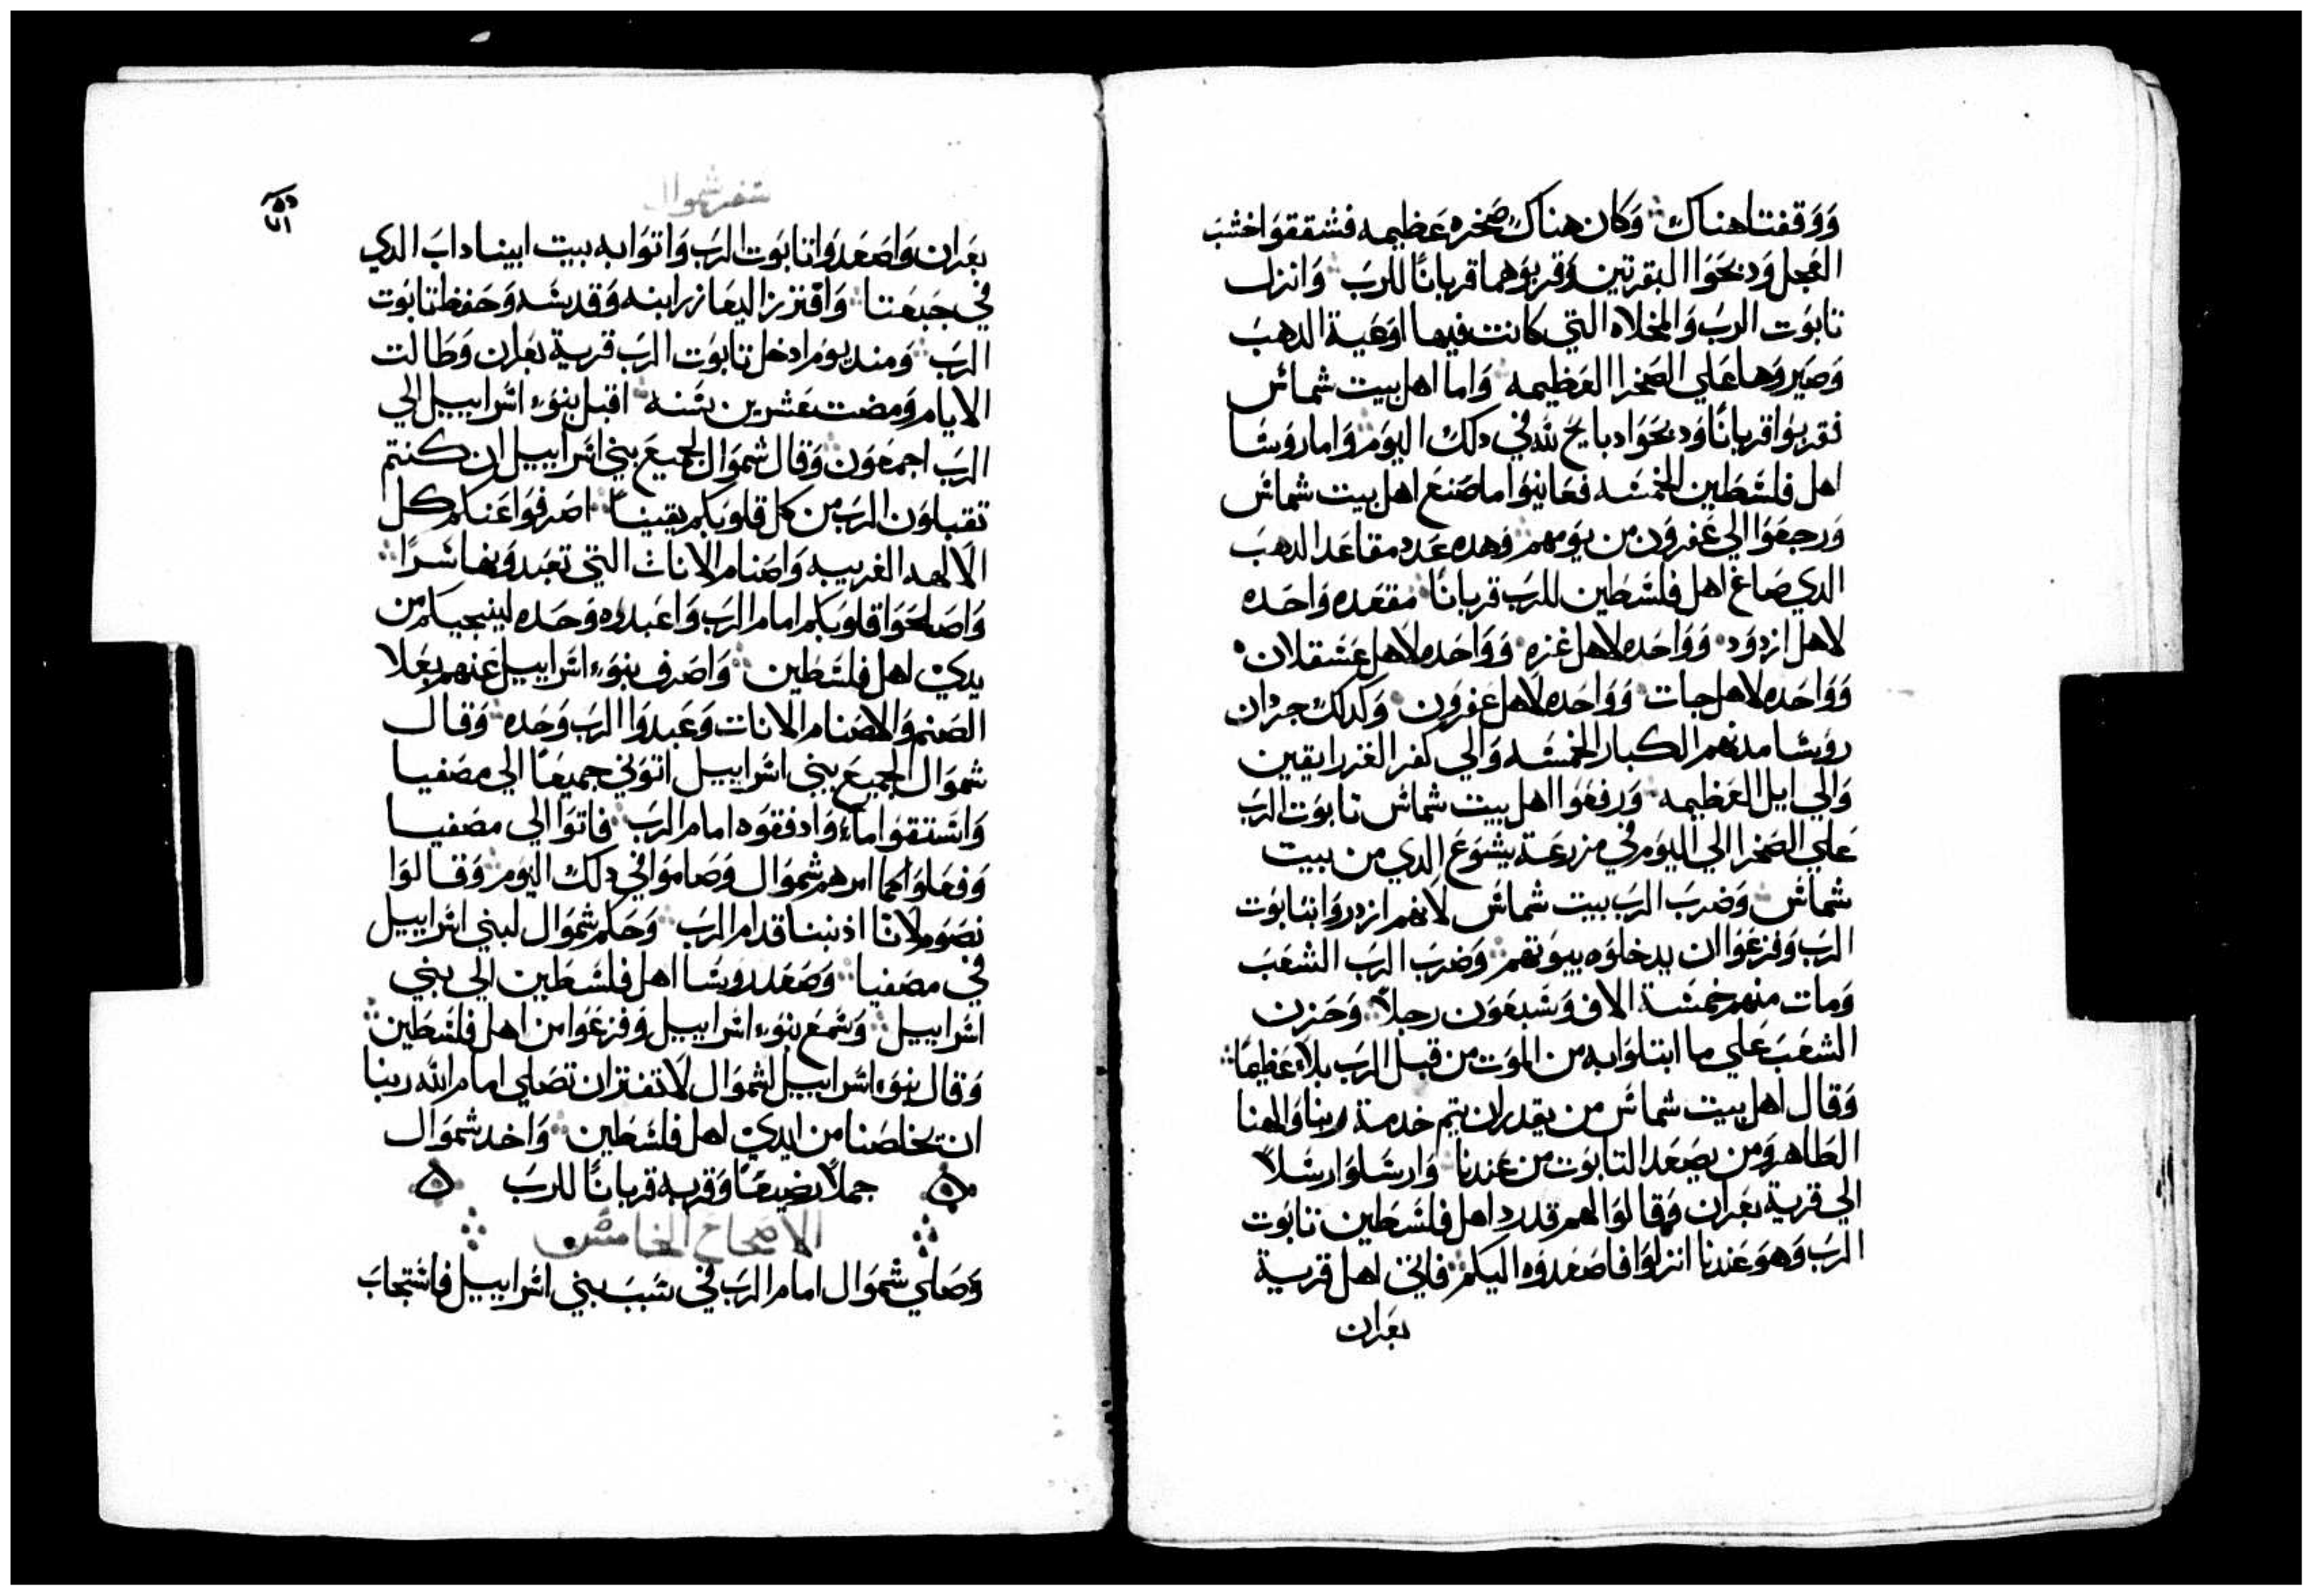 ووقفتا هناك وكان هناك صخره عظيمه فشققوا خشب
العجل ودبحوا البقرتين وقربوهما قربانًا للرب وانزل
تابوت الرب والمخلاه التي كانت فيها اوعية الدهب
وصيروها علي الصخرا العظيمه واما اهل بيت شماس
فقربوا قربانًا ودبحوا دبايح لله في دلك اليوم واما روسا
اهل فلسطين الخمسه فعاينوا ما صنع اهل بيت شماس
ورجعوا الي عفرون من يومهم وهده عدد مقاعد الدهب
الدي صاغ اهل فلسطين للرب قربانًا مقعده واحده
لاهل ازدود وواحده لاهل غزه وواحده لاهل عسقلان
وواحده لاهل جات وواحده لاهل عفرون وكدلك جردان
روسا مدنهم الكبار الخمسه والي كفر الغزرايقين
والي ابل العظيمه ورفعوا اهل بيت شماس تابوت الرب
علي الصخرا الي اليوم في مزرعة يشوع الدي من بيت
شماس وضرب الرب بيت شماس لانهم ازدروا بتابوت
الرب وفزعوا ان يدخلوه بيوتهم وضرب الرب الشعب
ومات منهم خمسة الاف وسبعون رجلاً وحزن
الشعب علي ما ابتلوا به من الموت من قبل الرب بلاء عظيمًا
وقال اهل بيت شماس من يقدر ان يتم خدمة ربنا والهنا
الطاهر ومن يصعد التابوت من عندنا وارسلوا رسلاً
الي قرية بعران وقالوا لهم قد رد اهل فلسطين تابوت
الرب وهو عندنا انزلوا فاصعدوه اليكم فاتي اهل قرية
بعران
سفر شموال
بعران واصعدوا تابوت الرب واتوا به بيت ابيناداب الدي
في جبعتا وافترز اليعازر ابنه وقدسه وحفظ تابوت
الرب ومند يوم ادخل تابوت الرب قرية بعران وطالت
الايام ومضت عشرين سنه اقبل بنوء اسراييل الي
الرب اجمعون وقال شموال لجميع بني اسراييل ان كنتم
تقبلون الرب من كل قلوبكم يقينًا اصرفوا عنكم كل
الالهه الغريبه واصنام الاناث التي تعبدونها سرًا
واصلحوا قلوبكم امام الرب واعبدوه وحده لينجيكم من
يدي اهل فلسطين واصرف بنوء اسراييل عنهم بعلا
الصنم والاصنام الانات وعبدوا الرب وحده وقال
شموال لجميع بني اسراييل اتوني جميعًا الي مصفيا
واستقوا ماء وادفقوه امام الرب فاتوا الي مصفيا
وفعلوا كما امرهم شموال وصاموا في دلك اليوم وقالوا
نصوم لانا ادنبنا قدام الرب وحكم شموال لبني اسراييل
في مصفيا وصعد روسا اهل فلسطين الي بني
اسراييل وسمع بنوء اسراييل وفزعوا من اهل فلسطين
وقال بنوء اسراييل لشموال لا تفتر ان تصلي امام الله ربنا
ان تخلصنا من ايدي اهل فلسطين واخد شموال
جملاً رضيعًا وقربه قربانًا للرب
الاصحاح الخامس
وصلي شموال امام الرب في سبب بني اسراييل فاستجاب